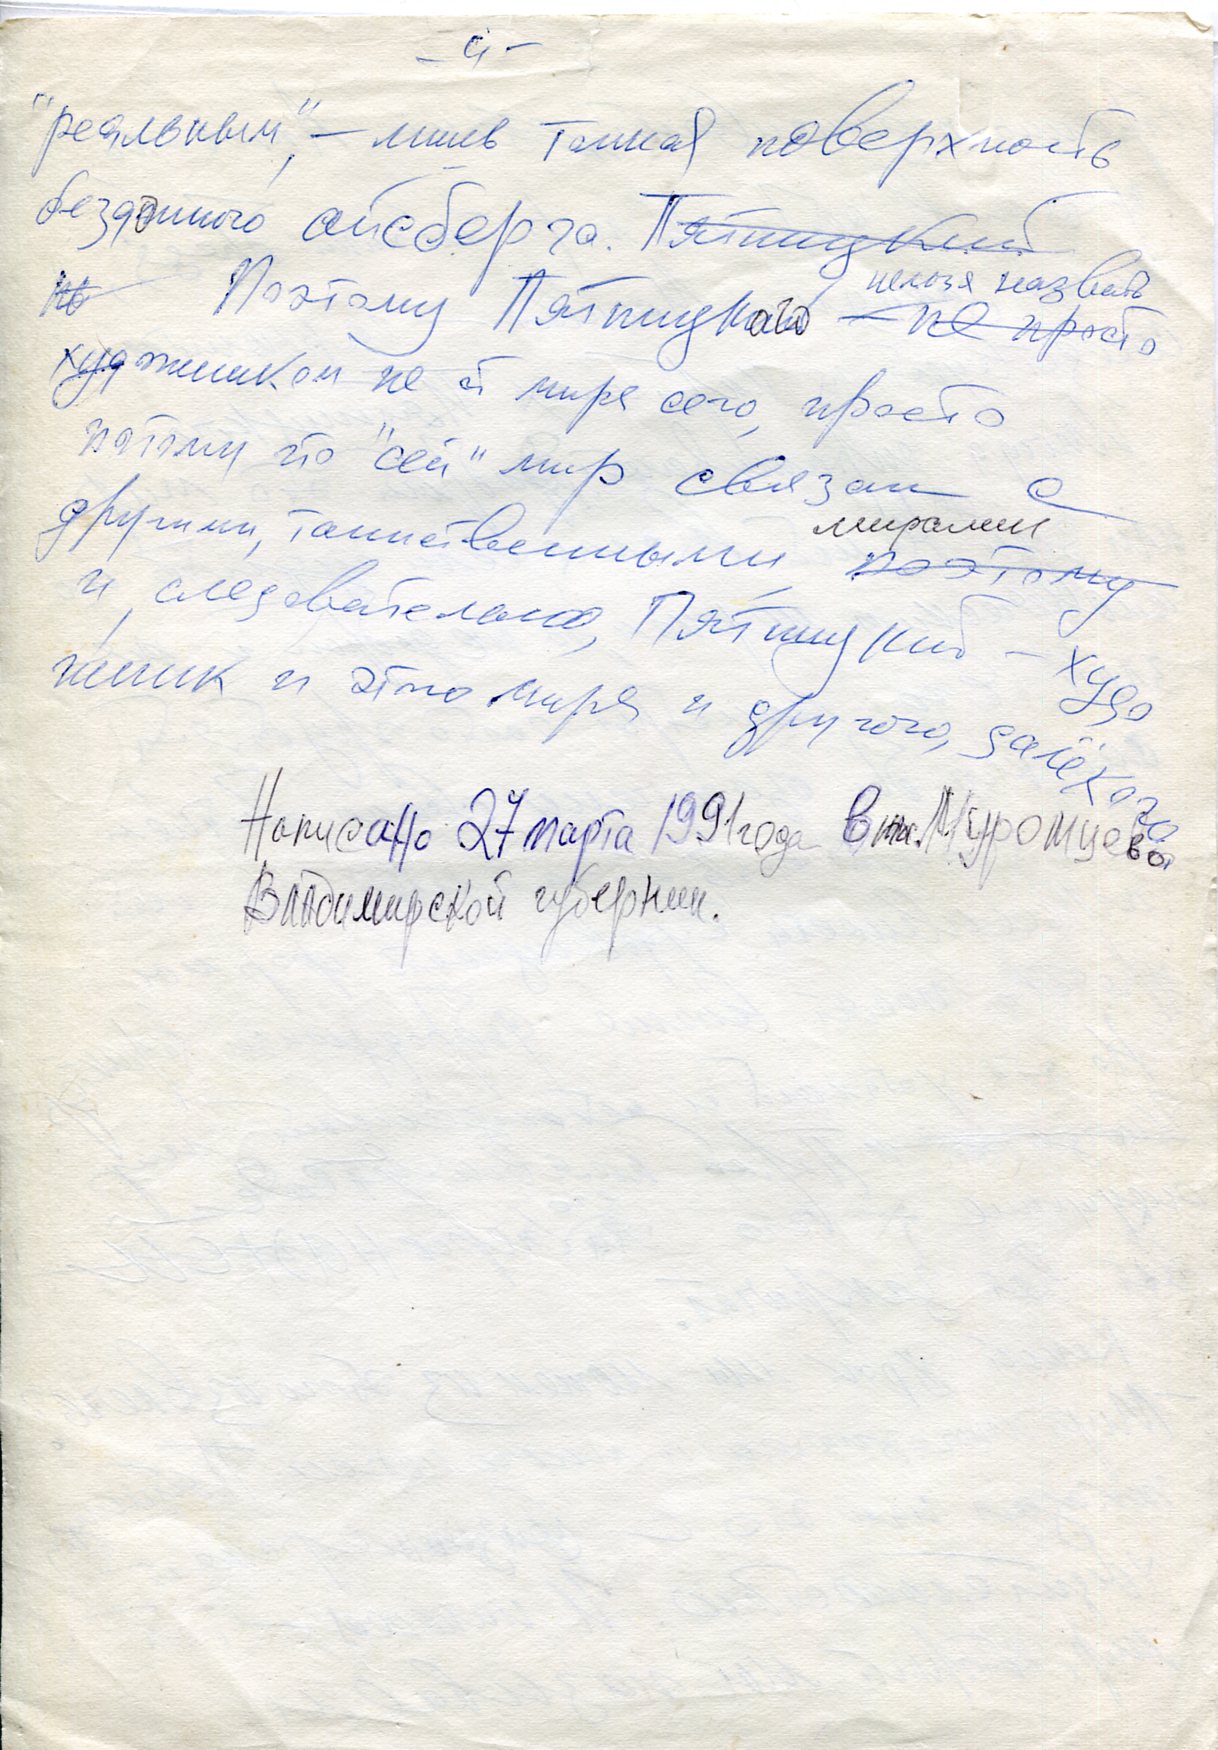 - 4 -
"реальным", – лишь тонкая поверхность
бездонного айсберга. Пятницкий
но Поэтому Пятницкого нельзя назвать – не просто
художником не от мира сего, просто
потому что "сей" мир связан с
другими, таинственными мирами поэтому
и, следовательно, Пятницкий – худо
жник и этого мира и другого, далёкого
Написано 27 марта 1991 года в им. Муромцево
Владимирской губернии.